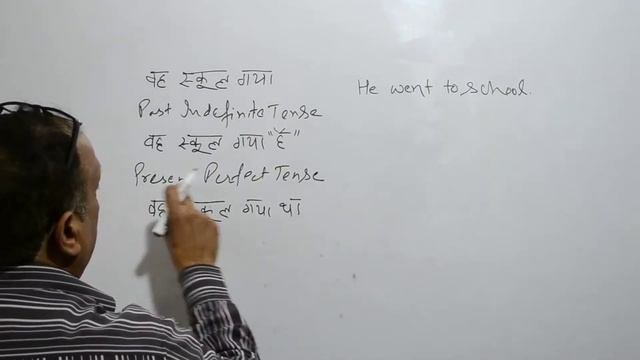 वह स्कूल गया
He went to school.
Past Indefinite Tense
वह स्कूल गया "है"
Present Perfect Tense
वह स्कूल गया था